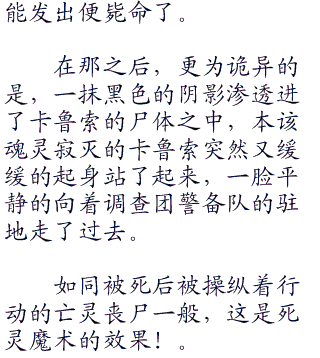 能发出便毙命了。
在那之后，更为诡异的
是，一抹黑色的阴影渗透进
了卡鲁索的尸体之中，本该
魂灵寂灭的卡鲁索突然又缓
缓的起身站了起来，一脸平
静的向着调查团警备队的驻
地走了过去。
如同被死后被操纵着行
动的亡灵丧尸一般，这是死
灵魔术的效果！。